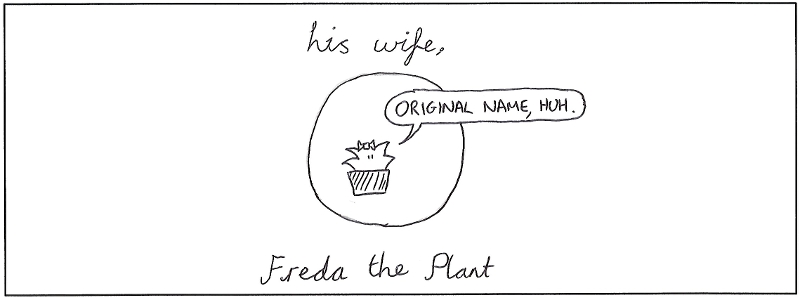 his wife,
ORIGINAL NAME, HUH.
Freda the Plant